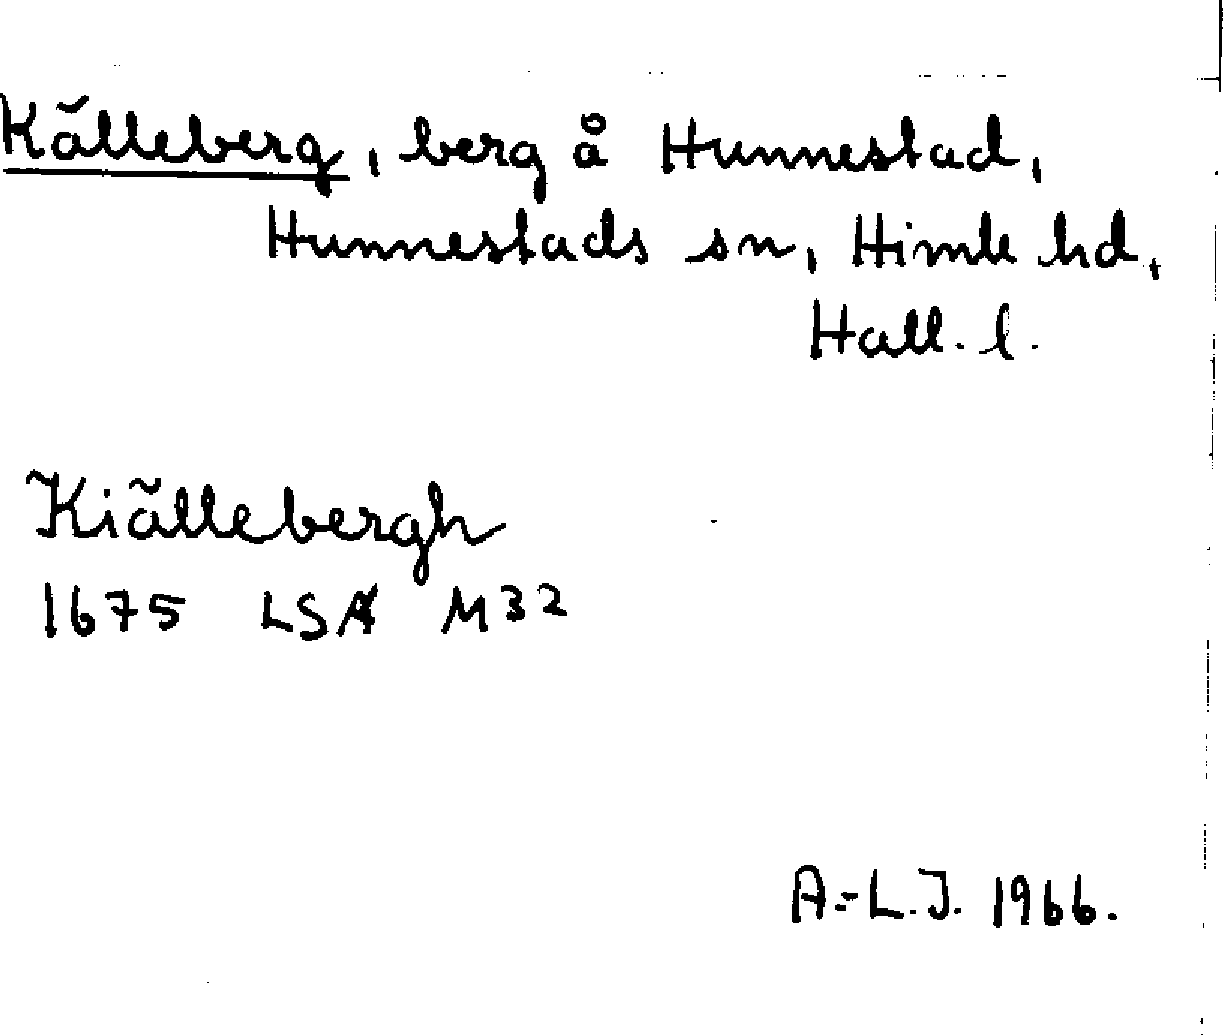 Källeberg, berg å Hunnestad,
Hunnestads sn, Himle hd,
Hall. l.
Kiällebergh
1675 LSA M32
A.-L.J. 1966.